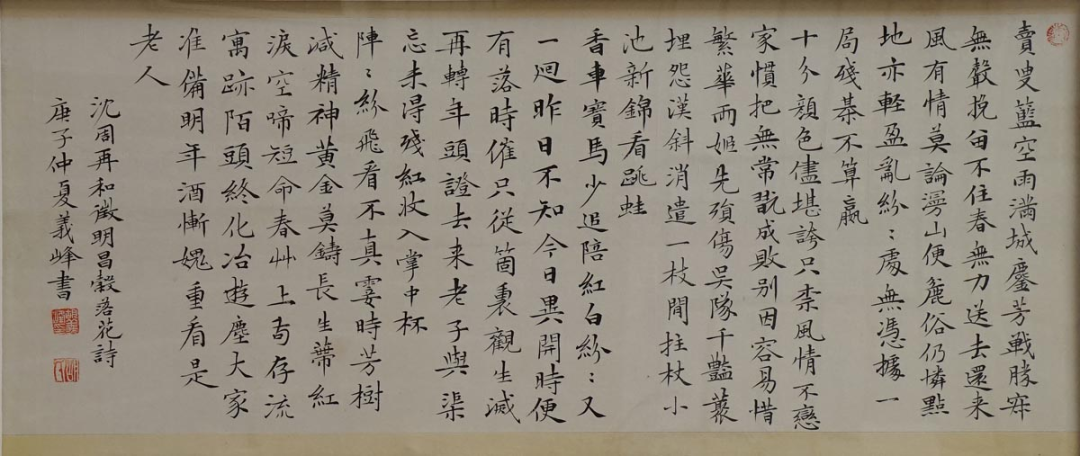 賣叟籃空雨滿城鏖芳戰勝寂
無聲挽留不住春無力送去還來
風有情莫論漫山便麁俗仍憐點
地亦輕盈亂紛〻處無憑據一
局殘棊不算贏
十分顏色儘堪誇只柰風情不戀
家慣把無常翫成敗別因容易惜
繁華兩姬先殞傷吳隊千豔叢
埋怨漢斜消遣一枝閒拄杖小
池新錦看跳蛙
香車寶馬少追陪紅白紛〻又
一迴昨日不知今日異開時便
有落時催只從箇裏觀生滅
再轉年頭證去來老子與渠
忘未得殘紅收入掌中杯
陣〻紛飛看不真霎時芳樹
減精神黃金莫鑄長生蔕紅
淚空啼短命春艸上苟存流
寓跡陌頭終化冶遊塵大家
准備明年酒慚媿重看是
老人
沈周再和徵明昌穀落花詩
庚子仲夏義峰書